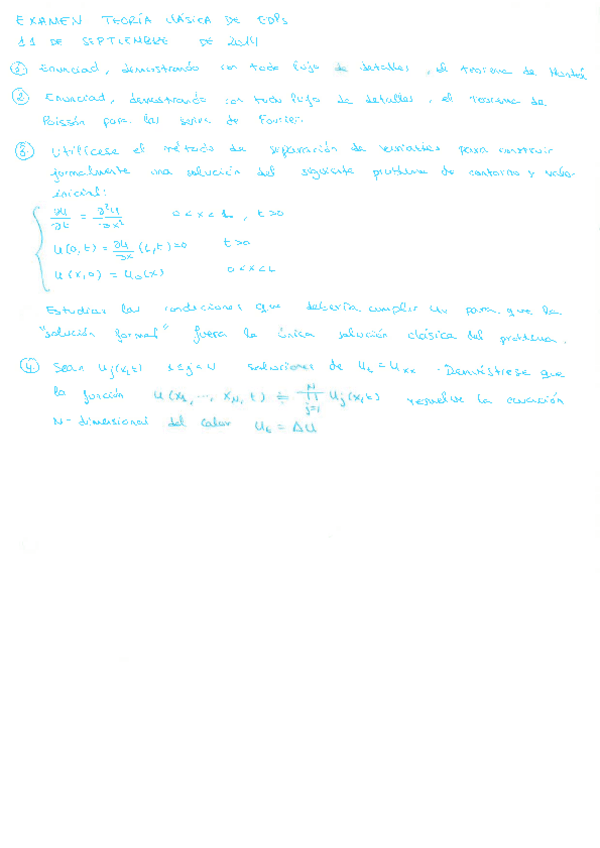 EXAMEN TEORÍA CLÁSICA DE EDPs
11 DE SEPTIEMBRE DE 2014
① Enunciad, demostrando con todo lujo de detalles, el teorema de
② Enunciad, demostrando con todo lujo de detalles, el teorema de
Poisson para las series de Fourier.
③ Utilícese el método de separación de variables para construir
formalmente una solución del siguiente problema de contorno y valor
inicial:
∂u/∂t = ∂²u/∂x² 0<x<L, t>0
u(0,t) = ∂u/∂x (L,t) = 0 t>0
u(x,0) = u₀(x) 0<x<L
Estudiar las condiciones que debería cumplir u₀ para que la
"solución formal" fuera la única solución clásica del problema.
④ Sean uj(x,t) 1≤j≤N soluciones de ut = uxx. Demuéstrese que
la función u(x₁, ..., xN, t) ≐ ∏_{j=1}^{N} uj(x,t) resuelve la ecuación
N-dimensional del calor ut = Δu